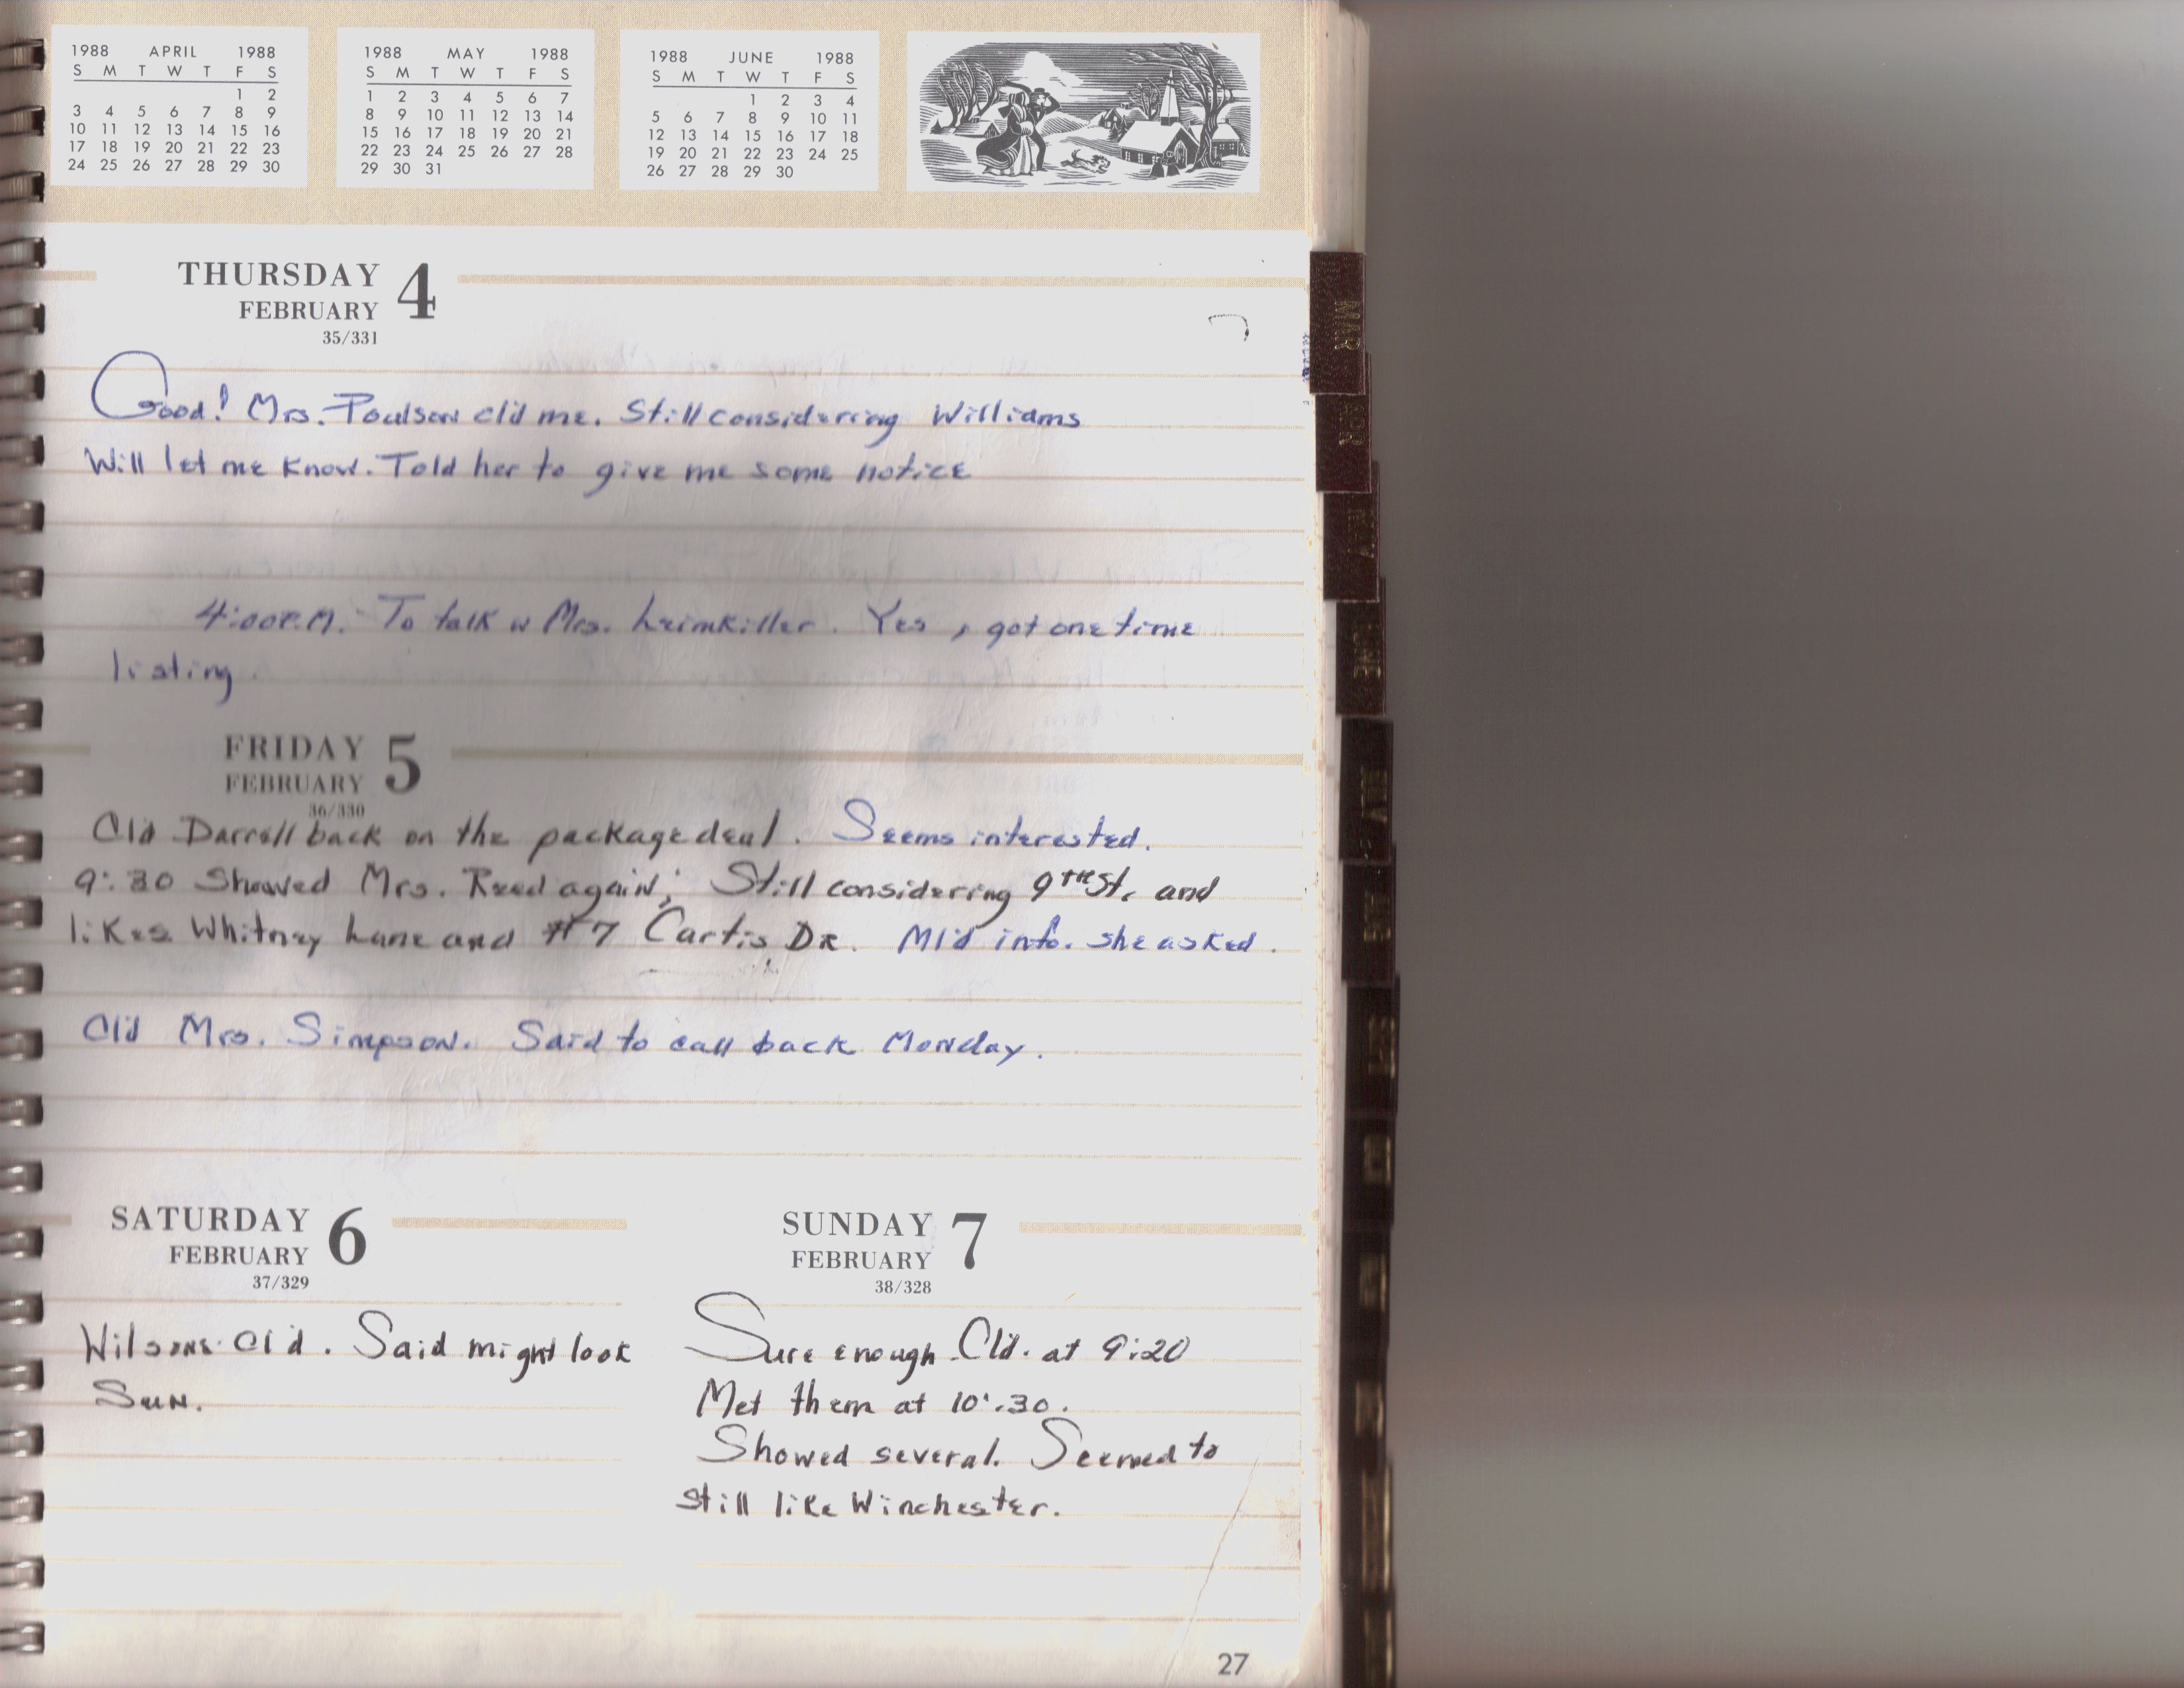 1988 APRIL 1988
S M T W T F S
1 2
3 4 5 6 7 8 9
10 11 12 13 14 15 16
17 18 19 20 21 22 23
24 25 26 27 28 29 30
1988 MAY 1988
S M T W T F S
1 2 3 4 5 6 7
8 9 10 11 12 13 14
15 16 17 18 19 20 21
22 23 24 25 26 27 28
29 30 31
1988 JUNE 1988
S M T W T F S
1 2 3 4
5 6 7 8 9 10 11
12 13 14 15 16 17 18
19 20 21 22 23 24 25
26 27 28 29 30
THURSDAY 4
FEBRUARY
35/331
Good! Mrs. Poulson cl'd me. Still considering Williams
Will let me know. Told her to give me some notice
4:00P.M. - To talk w Mrs. Leimkiller. Yes, got one time
listing.
FRIDAY 5
FEBRUARY
36/330
Cl'd Darrell back on the package deal. Seems interested.
9:30 Showed Mrs. Reed again; Still considering 9TH St. and
likes Whitney Lane and #7 Curtis DR. Ml'd info. she asked.
Cl'd Mrs. Simpson. Said to call back Monday.
SATURDAY 6
FEBRUARY
37/329
Wilsons Cl'd. Said might look
Sun.
SUNDAY 7
FEBRUARY
38/328
Sure enough. Cl'd. at 9:20
Met them at 10:30.
Showed several. Seemed to
still like Winchester.
27
MAR
APR
MAY
JUNE
JULY
AUG
SEPT